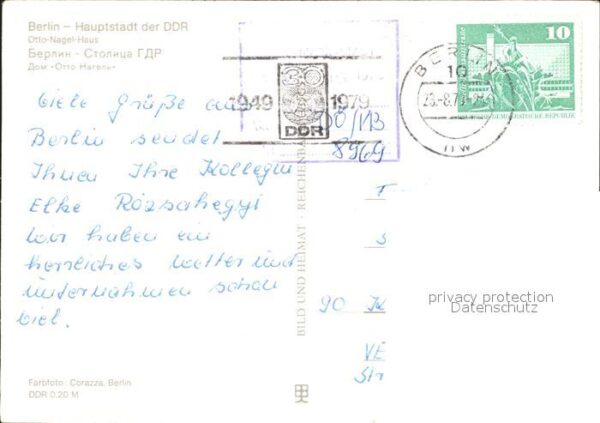 Berlin – Hauptstadt der DDR
Otto-Nagel-Haus
Берлин - Столица ГДР
Дом «Отто Нагель»
Viele Grüße aus
Berlin sendet
Ihnen Ihre Kollegin
Elke Rózsahegyi
Wir haben ein
herrliches Wetter und
unternahmen schon
viel.
Farbfoto: Corazza, Berlin
DDR 0,20 M
BILD UND HEIMAT · REICHENBACH
1949 30 1979
DDR
8969
10
DEUTSCHE DEMOKRATISCHE REPUBLIK
BERLIN
10
nw
T
S
90 K
VE
Str
privacy protection
Datenschutz